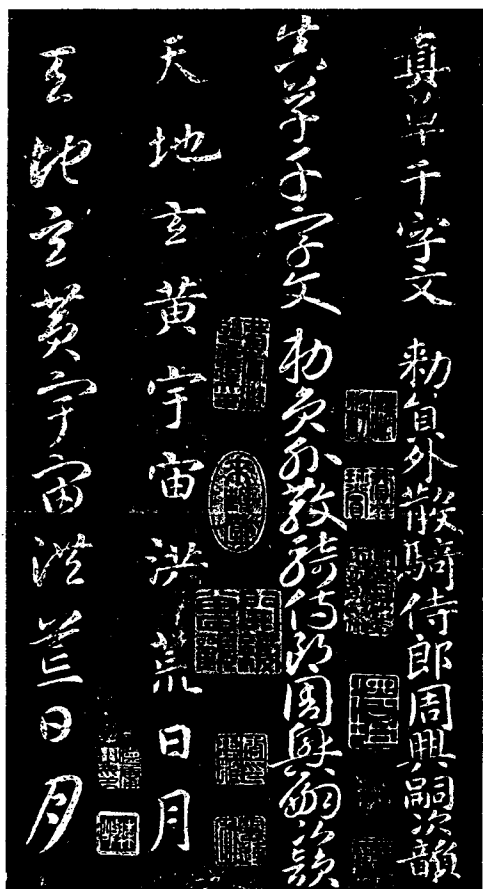 真草千字文 勅員外散騎侍郎周興嗣次韻
真草千字文 勅員外散騎侍郎周興嗣次韻
天地玄黄宇宙洪荒日月
天地玄黄宇宙洪荒日月